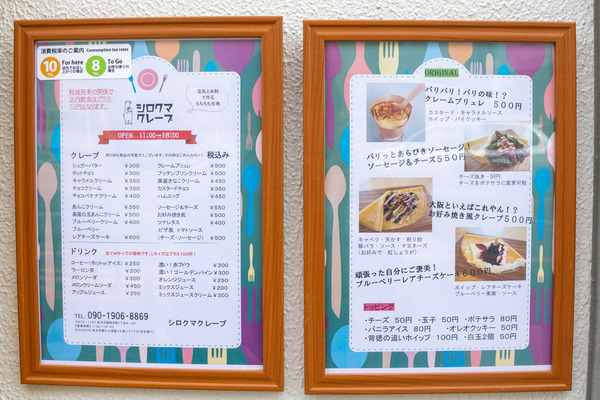 消費税率のご案内 Consumption tax rates
10% For here 店内でお召し上がりの場合
8% To Go お持ち帰りの場合
軽減税率の関係で
店内飲食はプラス
10円となります。
シロクマ
クレープ
豆乳と米粉
で作る
もちもち生地
OPEN 11:00~18:00
クレープ 税込み
シュガーバター ¥300
ホットチョコ ¥300
キャラメルクリーム ¥350
チョコクリーム ¥350
チョコバナナクリーム ¥400
あんこクリーム ¥350
黒蜜白玉あんこクリーム ¥500
ブルーベリークリーム ¥400
ブルーベリー
レアチーズケーキ ¥600
クレームブリュレ ¥500
プッチンプリンクリーム ¥500
黒蜜きなこクリーム ¥450
カスタードチョコ ¥350
ハムエッグ ¥450
ソーセージ&チーズ ¥550
お好み焼き風 ¥500
ツナレタス ¥400
ピザ風 トマトソース
(チーズ・ソーセージ) ¥500
ドリンク 全てMサイズの価格です。Lサイズはプラス100円!
コーヒー(ホットorアイス) ¥250
ウーロン茶 ¥200
メロンソーダ ¥300
メロンクリームソーダ ¥450
アップルジュース ¥250
濃い!赤ブドウ ¥300
濃い!ゴールデンパイン ¥300
オレンジジュース ¥250
ミックスジュース ¥200
ミックスジュースクリーム ¥300
TEL. 090-1906-8869
シロクマクレープ
ORIGINAL
パリパリ!パリの味!?
クレームブリュレ 500円
カスタード・キャラメルソース
ホイップ・パイクッキー
パリっとあらびきソーセージ!
ソーセージ&チーズ550円
チーズ抜き・50円
チーズをポテサラに変更可能
大阪といえばこれやん!?
お好み焼き風クレープ500円
キャベツ・天かす・削り粉
豚バラ・ソース・マヨネーズ
(お好みで 紅しょうが)
頑張った自分にご褒美!
ブルーベリーレアチーズケーキ600円
ホイップ・レアチーズケーキ
ブルーベリー果実・ソース
トッピング
・チーズ 50円 ・玉子 50円 ・ポテサラ 80円
・バニラアイス 80円 ・オレオクッキー 50円
・背徳の追いホイップ 100円 ・白玉2個 50円